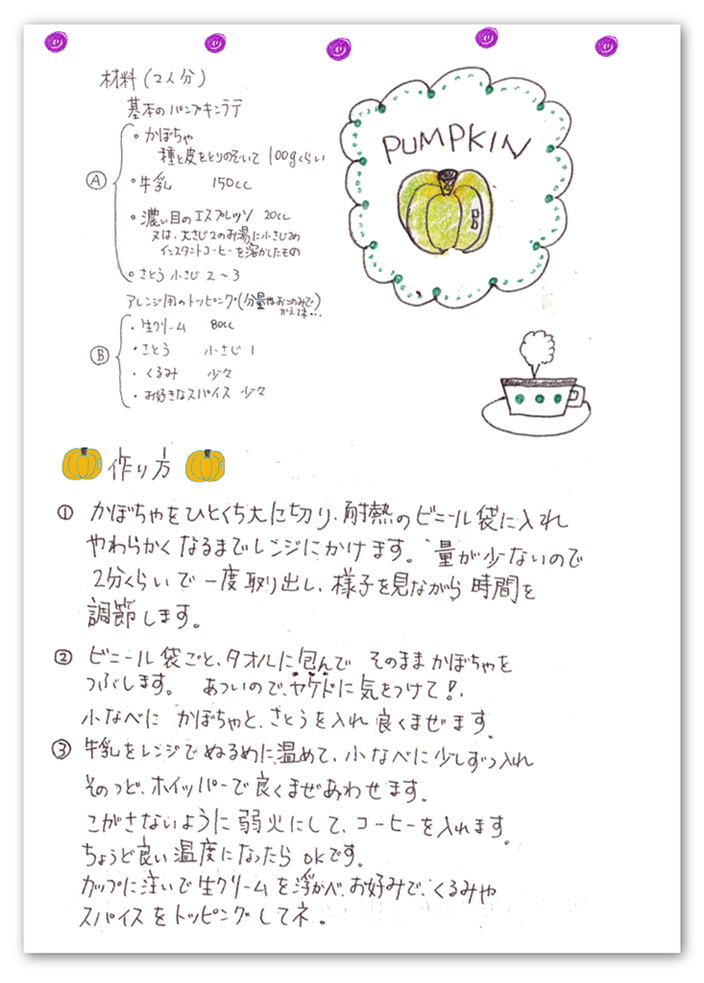 材料(2人分)
基本のパンプキンラテ
Ⓐ
・かぼちゃ
種と皮をとりのぞいて 100gくらい
・牛乳 150cc
・濃い目のエスプレッソ 20cc
又は、大さじ2のお湯に小さじ2の
インスタントコーヒーを溶かしたもの
・さとう 小さじ 2~3
アレンジ用のトッピング(分量はおこのみで
かえてネ…)
Ⓑ
・生クリーム 80cc
・さとう 小さじ 1
・くるみ 少々
・お好きなスパイス 少々
PUMPKIN
作り方
① かぼちゃをひとくち大に切り、耐熱のビニール袋に入れ
やわらかくなるまでレンジにかけます。量が少ないので
2分くらいで一度取り出し、様子を見ながら時間を
調節します。
② ビニール袋ごと、タオルに包んで そのままかぼちゃを
つぶします。 あついので、ヤケドに気をつけて!、
小なべに かぼちゃと、さとうを入れ 良くまぜます。
③ 牛乳をレンジでぬるめに温めて、小なべに少しずつ入れ
そのつど、ホイッパーで良くまぜあわせます。
こがさないように弱火にして、コーヒーを入れます。
ちょうど良い温度になったら okです。
カップに注いで生クリームを浮かべ、お好みで、くるみや
スパイスをトッピングしてネ。